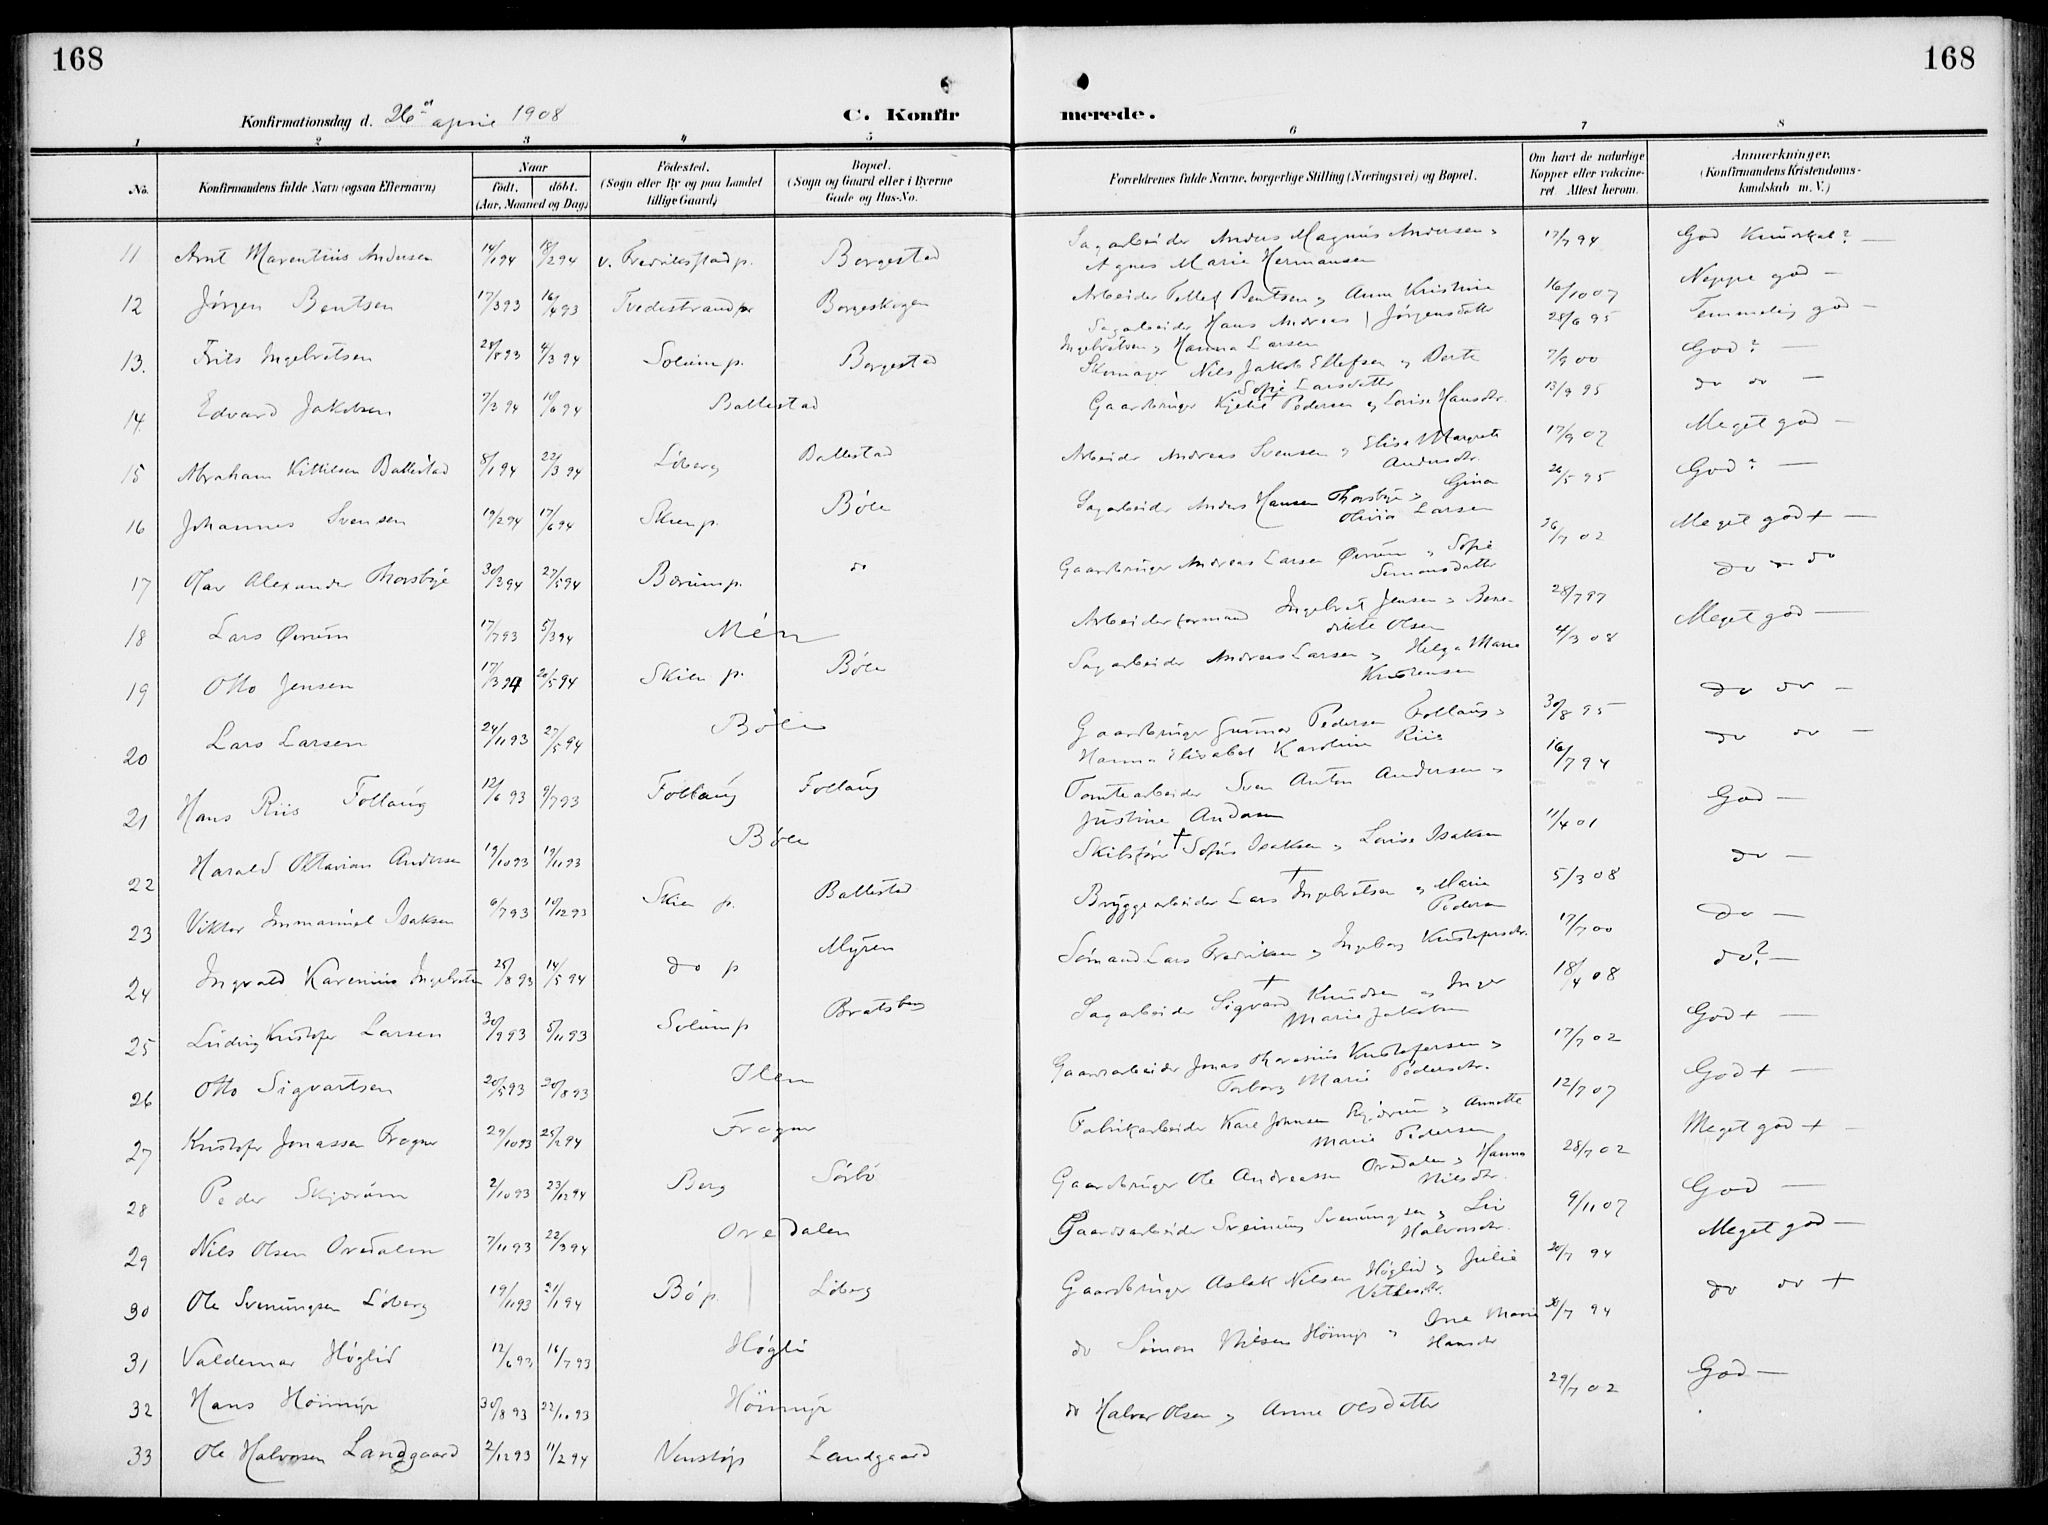 168
168
Konfirmationsdag d. 26 april 1908
C. Konfir
merede.
1 2 3 4 5 6 7 8
No.
Konfirmandens fulde Navn (ogsaa Efternavn)
Naar
født. døbt.
(Aar, Maaned og Dag)
Födested.
(Sogn eller By og paa Landet
tillige Gaard)
Bopæl.
(Sogn og Gaard eller i Byerne
Gade og Hus-No.
Forældrenes fulde Navne, borgerlige Stilling (Næringsvei) og Bopæl.
Om havt de naturlige
Kopper eller vakcine-
ret. Attest herom.
Anmærkninger.
(Konfirmandens Kristendoms-
kundskab m. V.)
11 Arnt Marentius Andersen 14/1 94 18/2 94 v. Fredrikstad p. Borgestad
Sagarbeider Anders Magnus Andersen
Agnes Marie Hermansen 17/7 94 God Kundskab? —
12 Jörgen Bentsen 17/3 93 16/4 93 Tvedestrand p Borgeskogen
Arbeider Tellef Bentsen og Anne Kristine
Jørgensdatter 16/10 07 Neppe god —
13. Frits Ingebretsen 28/8 93 4/3 94 Solum p. Borgestad
Sagarbeider Hans Andreas
Ingebretsen og Hanna Larsen 28/6 95 Temmelig god —
14. Edvard Jakobsen 7/3 94 10/6 94 Ballestad
Skomager Nils Jakob Ellefsen og Berte
Sofie Larsdatter 7/9 00 God? —
15 Abraham Kittilsen Ballestad 8/1 94 22/3 94 Løberg Ballestad
Gaardbruger Kjetil Pedersen og Lovise Hansdtr. 13/9 95 do do —
16 Johannes Svensen 19/2 94 17/6 94 Skien p. Bøle
Arbeider Andreas Svensen og Elise Margrete
Andersdtr. 17/9 07 Meget god —
17 Olav Alexander Thorsbye 30/3 94 27/5 94 Bærum p. do
Sagarbeider Anders Hansen Thorsbye og Gina
Olivia Larsen 26/5 95 God? —
18 Lars Øvrum 17/7 93 5/3 94 Mén
Gaardbruger Andreas Larsen Øvrum og Sofie
Simonsdatter 26/7 02 Meget god + —
19 Otto Jensen 17/3 94 20/5 94 Skien p. Bøle
Arbeiderformand Ingebret Jensen og Bene-
dikte Olsen 28/7 97 do — do
20 Lars Larsen 24/11 93 27/5 94 Bøle
Sagarbeider Andreas Larsen og Helga Marie
Kristensen 4/3 08 Meget god —
21 Hans Riis Follaug 12/6 93 9/7 93 Follaug Follaug
Gaardbruger Gunnar Pedersen Follaug og
Hanna Elisabet Karoline Riis 30/8 95 do do —
22 Harald Oktavian Andersen 19/10 93 19/11 93 Bøle
Tomtearbeider Sven Anton Andersen og
Justine Andersen 16/7 94 do do —
23 Viktor Immanuel Isaksen 6/7 93 10/12 93 Skien p. Ballestad
Skibsfører † Sofus Isaksen og Lovise Isaksen 11/4 01 God —
24 Ingvald Karenius Ingebretsen 25/8 93 14/5 94 do p Myren
Bryggearbeider Lars † Ingebretsen og Marie
Pedersen 5/3 08 do —
25 Ludvig Kristofer Larsen 30/9 93 5/11 93 Solum p Bratsberg
Sømand Lars Fredriksen og Ingeborg Kristofersdtr. 17/7 00 do —
26 Otto Sigvartsen 20/5 93 20/8 93 Ilen
Sagarbeider Sigvard † Knudsen og Inger
Marie Jakobsen 18/4 08 do? —
27 Kristofer Jonassen Frogner 29/10 93 25/2 94 Frogner
Gaardsarbeider Jonas Thorenius Kristofersen og
Torborg Marie Pedersdtr. 17/7 02 God + —
28 Peder Skjærum 2/10 93 23/12 94 Berg Sørbø
Fabrikarbeider Karl Johnsen Skjærum og Annette
Marie Pedersen 12/7 07 God + —
29 Nils Olsen Ovedalen 7/11 93 22/3 94 Ovedalen
Gaardbruger Ole Andreassen Ovedalen og Hanna
Nilsdtr. 28/7 02 Meget god + —
30 Ole Svenungsen Løberg 19/11 93 21/1 94 Bø p. Løberg
Gaardsarbeider Sveinung Svenungsen og Liv
Halvorsdtr. 9/11 07 God —
31 Valdemar Høglid 12/6 93 16/7 93 Høgli
Gaardbruger Aslak Nilsen Høglid og Julie
20/7 94 Meget god —
32 Hans Hömyr 30/8 93 22/10 93 Hömyr
do Simon Nilsen Hömyr og Ine Marie
Hansdtr 30/7 94 do do +
33 Ole Halvorsen Landgaard 2/12 93 11/2 94 Venstøp Landgaard
do Halvor Olsen og Anne Olsdatter 29/7 02 God —